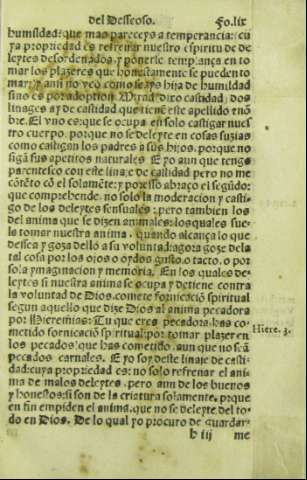 del Desseoso. Fo. lix
humildad: que mas pareçeys a temperancia: cu
ya propiedad es refrenar nuestro espiritu de de
leytes desordenados, y ponerle templança en to
mar los plazeres que honestamente se pueden to
mar: y ami no veo como seays hija de humildad
sino es por adoption. Mirad, dixo castidad, dos
linages ay de castidad que tienē este apellido enō
bre. El vno es: que se ocupa en solo castigar nues
tro cuerpo, porque no se deleyte en cosas suzias
como castigan los padres a sus hijos, porque no
sigā sus apetitos naturales. E yo aun que tengo
parentesco con este linaje de castidad pero no me
cōtēto cō el solamēte: y por esso abraço el segūdo:
que comprehende, no solo la moderacion y casti-
go de los deleytes sensuales: pero tambien los
del anima que se dizen animales: los quales sue-
le tomar nuestra anima, quando alcança lo que
dessea y goza dello a su voluntad: agora goze dela
tal cosa por los ojos o oydos gusto, o tacto, o por
sola ymaginacion y memoria. En los quales de-
leytes si nuestra anima se ocupa y detiene contra
la voluntad de Dios, comete fornicaciō spiritual
segun aquello que dize Dios al anima pecadora
por Hieremias: Tu que eres pecadora, has co-
metido fornicaciō spiritual: por tomar plazer en
los pecados que has cometido, aun que no seā
pecados carnales. E yo soy deste linaje de casti-
dad: cuya propiedad es: no solo refrenar el ani-
ma de malos deleytes, pero aun de los buenos
y honestos: si son de la criatura solamente, porque
en fin empiden el anima, que no se deleyte del to-
do en Dios. De lo qual yo procuro de guardar-
Hiere. 3.
h iij me